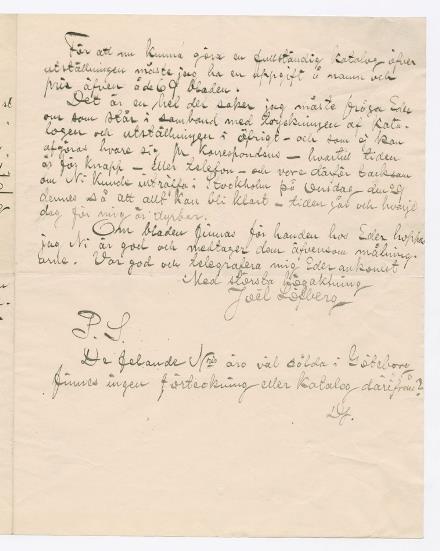 För att nu kunna göra en fullständig katalog öfver
utställningen måste jag ha en uppgift å namn och
pris äfven å de 69 bladen.
Det är en hel del saker jag måste fråga Eder
om som står i samband med tryckningen af kata-
logen och utställningen i öfrigt – och som ej kan
afgöras vare sig pr korrespondens – hvartill tiden
är för knapp – eller telefon – och vore därför tacksam
om Ni kunde inträffa i Stockholm på Onsdag den 29
dennes så att allt kan bli klart – tiden går och hvarje
dag för mig är dyrbar.
Om bladen finnas för handen hos Eder hoppas
jag Ni är god och medtager dem äfvensom målning-
arne. Var god och telegrafera mig Eder ankomst
Med största högaktning
Joël
P. S.
De felande Nrs äro väl sålda i Göteborg
finnes ingen förteckning eller katalog därifrån?